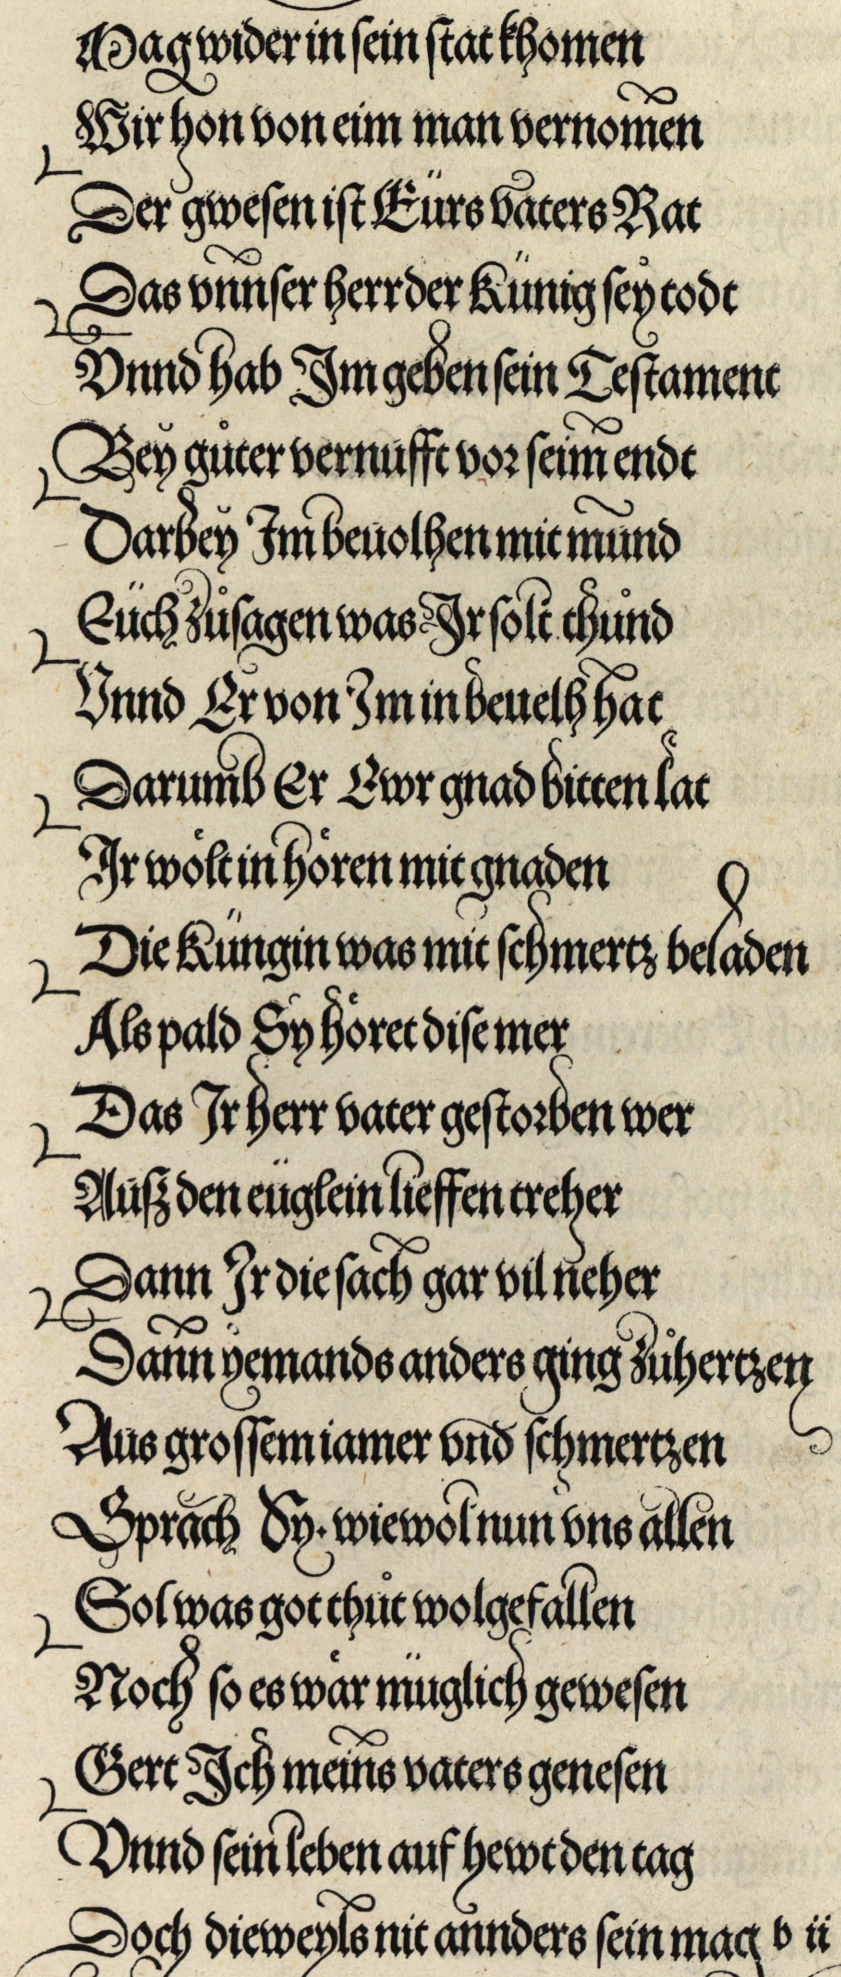 Mag wider in sein stat khomen
Wir hon von eim man vernomen
Der gwesen ist Eürs vaters Rat
Das vnnser herr der Künig sey todt
Vnnd hab Im geben sein Testament
Bey gůter vernufft vor seim endt
Darbey Im beuolhen mit mund
Eüch zůsagen was Ir solt thůnd
Vnnd Er von Im in beuelh hat
Darumb Er Ewr gnad bitten lat
Ir wölt in hören mit gnaden
Die Küngin was mit schmertz beladen
Als pald Sy höret dise mer
Das Ir herr vater gestorben wer
Auß den eüglein lieffen treher
Dann Ir die sach gar vil neher
Dann yemands anders ging zůhertzen
Aus grossem iamer vnd schmertzen
Sprach Sy. wiewol nun vns allen
Sol was got thůt wolgefallen
Noch so es wär müglich gewesen
Gert Ich meins vaters genesen
Vnnd sein leben auf hewt den tag
Doch dieweyls nit annders sein mag b ii